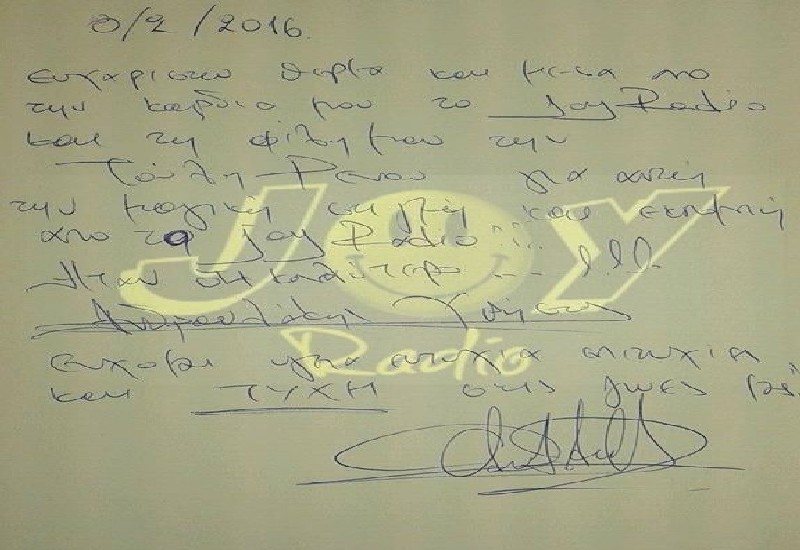 8/2/2016.
ευχαριστω θερμα και μεσα απο
την καρδια μου το Joy Radio
και τη φιλη μου την
Τουλη Ρενου για αυτη
την μαγικη στιγμη και εκπομπη
απο το Joy Radio !!...
Ηταν οτι καλυτερο ... !!!.
JOY
Radio
ευχομαι υγεια ευτυχια επιτυχια
και ΤΥΧΗ στις ζωες μας